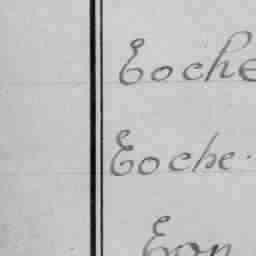 Eoche
Eoche.
Eon